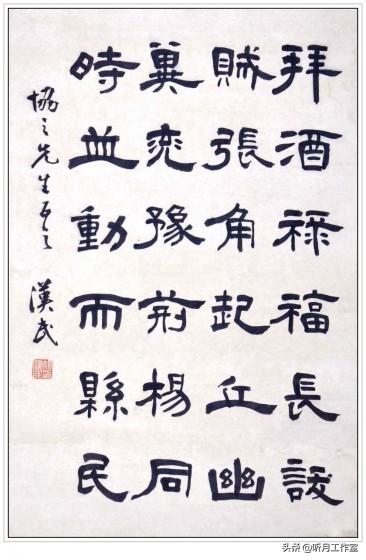 拜酒祿福長訞
賊張角起丘幽
冀兗豫荊楊同
時並動而縣民
協之先生正之 漢民
头条 @听月工作室